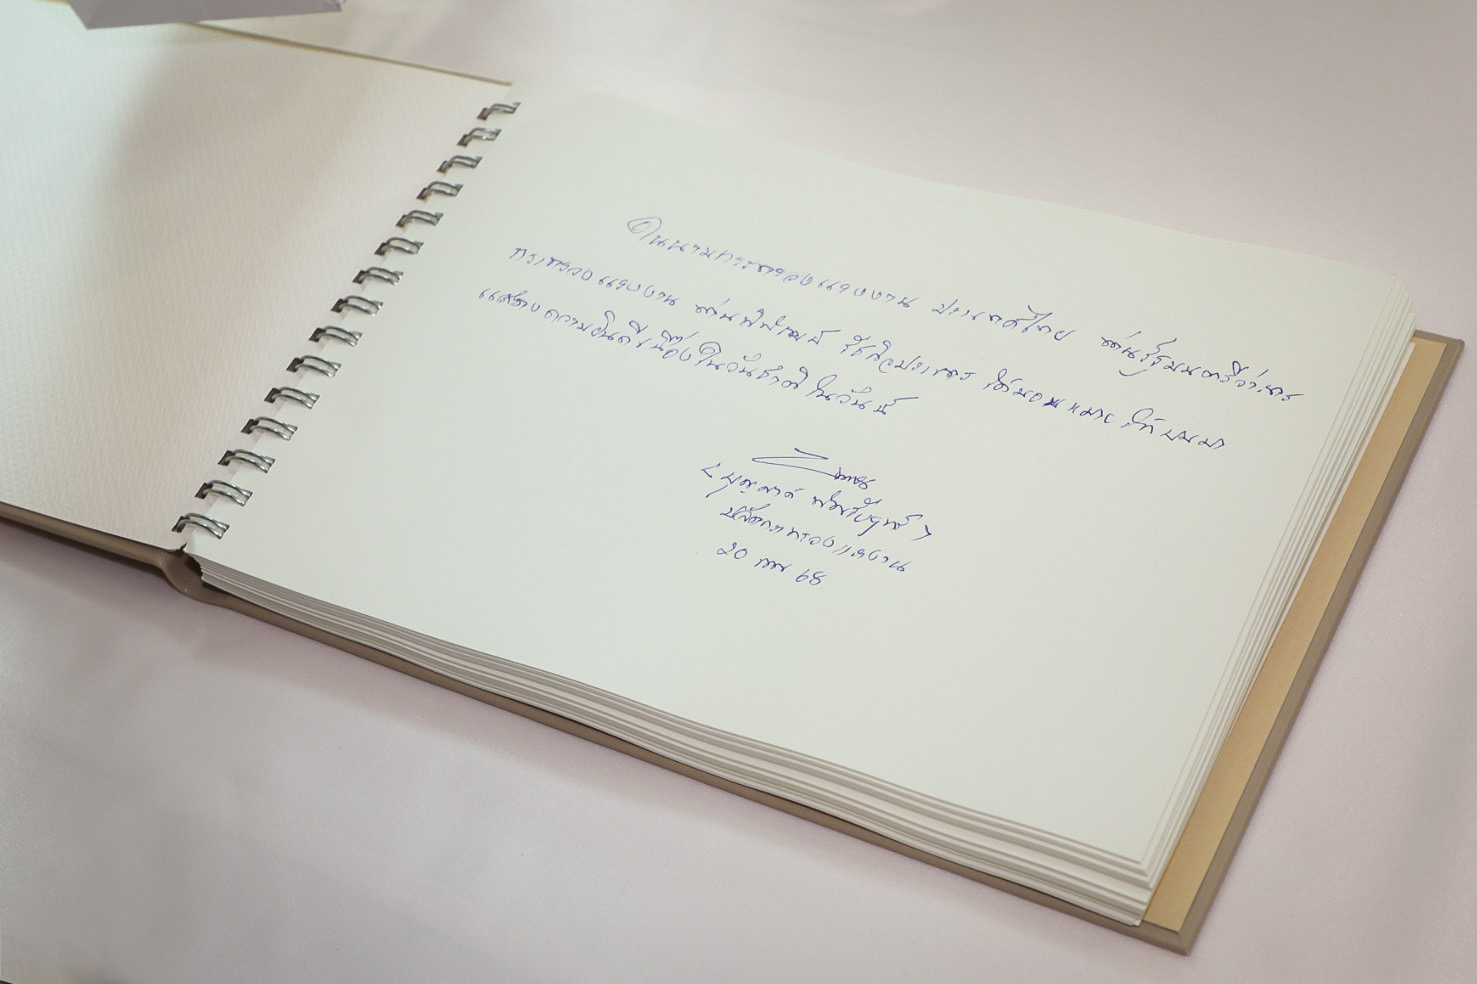 ในนามกระทรวงแรงงาน ประเทศไทย ท่านรัฐมนตรีว่าการ
กระทรวงแรงงาน ท่านพิพัฒน์ รัชกิจประการ ได้มอบหมาย ให้ผมมา
แสดงความยินดีเนื่องในวันชาติ ในวันนี้
( บุญสงค์ ทัพชัยยุทธ์ )
ปลัดกระทรวงแรงงาน
20 กพ 68